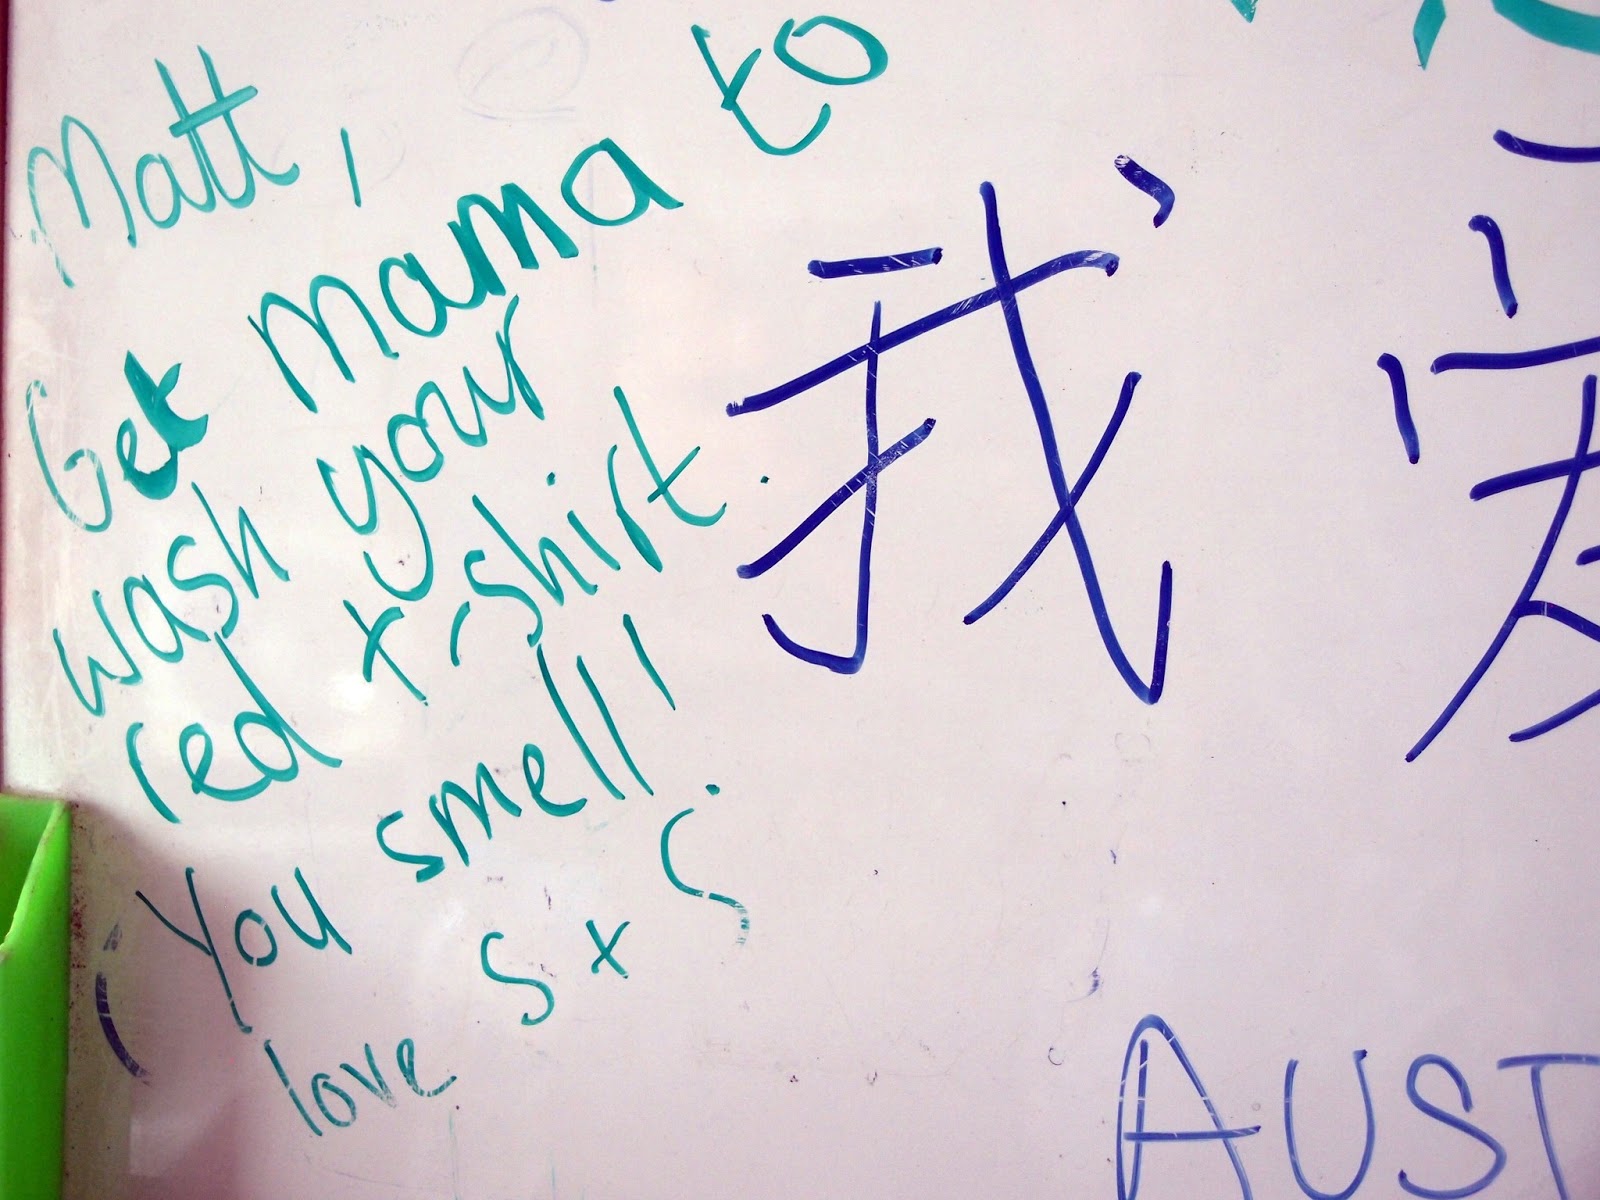 Matt,
Get mama to
wash your
red t-shirt.
You smell!
love S x S
我爱
AUST